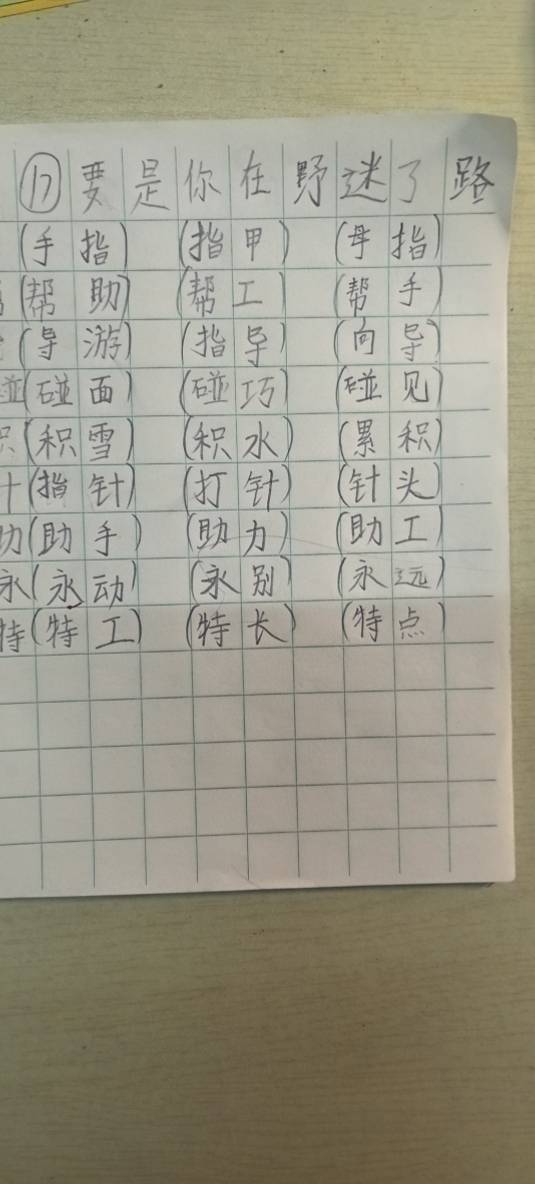 ⑰要是你在野迷了路
(手指) (指甲) (母指)
(帮助) (帮工) (帮手)
(导游) (指导) (向导)
碰(碰面) (碰巧) (碰见)
积(积雪) (积水) (累积)
针(指针) (打针) (针头)
助(助手) (助力) (助工)
永(永动) (永别) (永远)
特(特工) (特长) (特点)